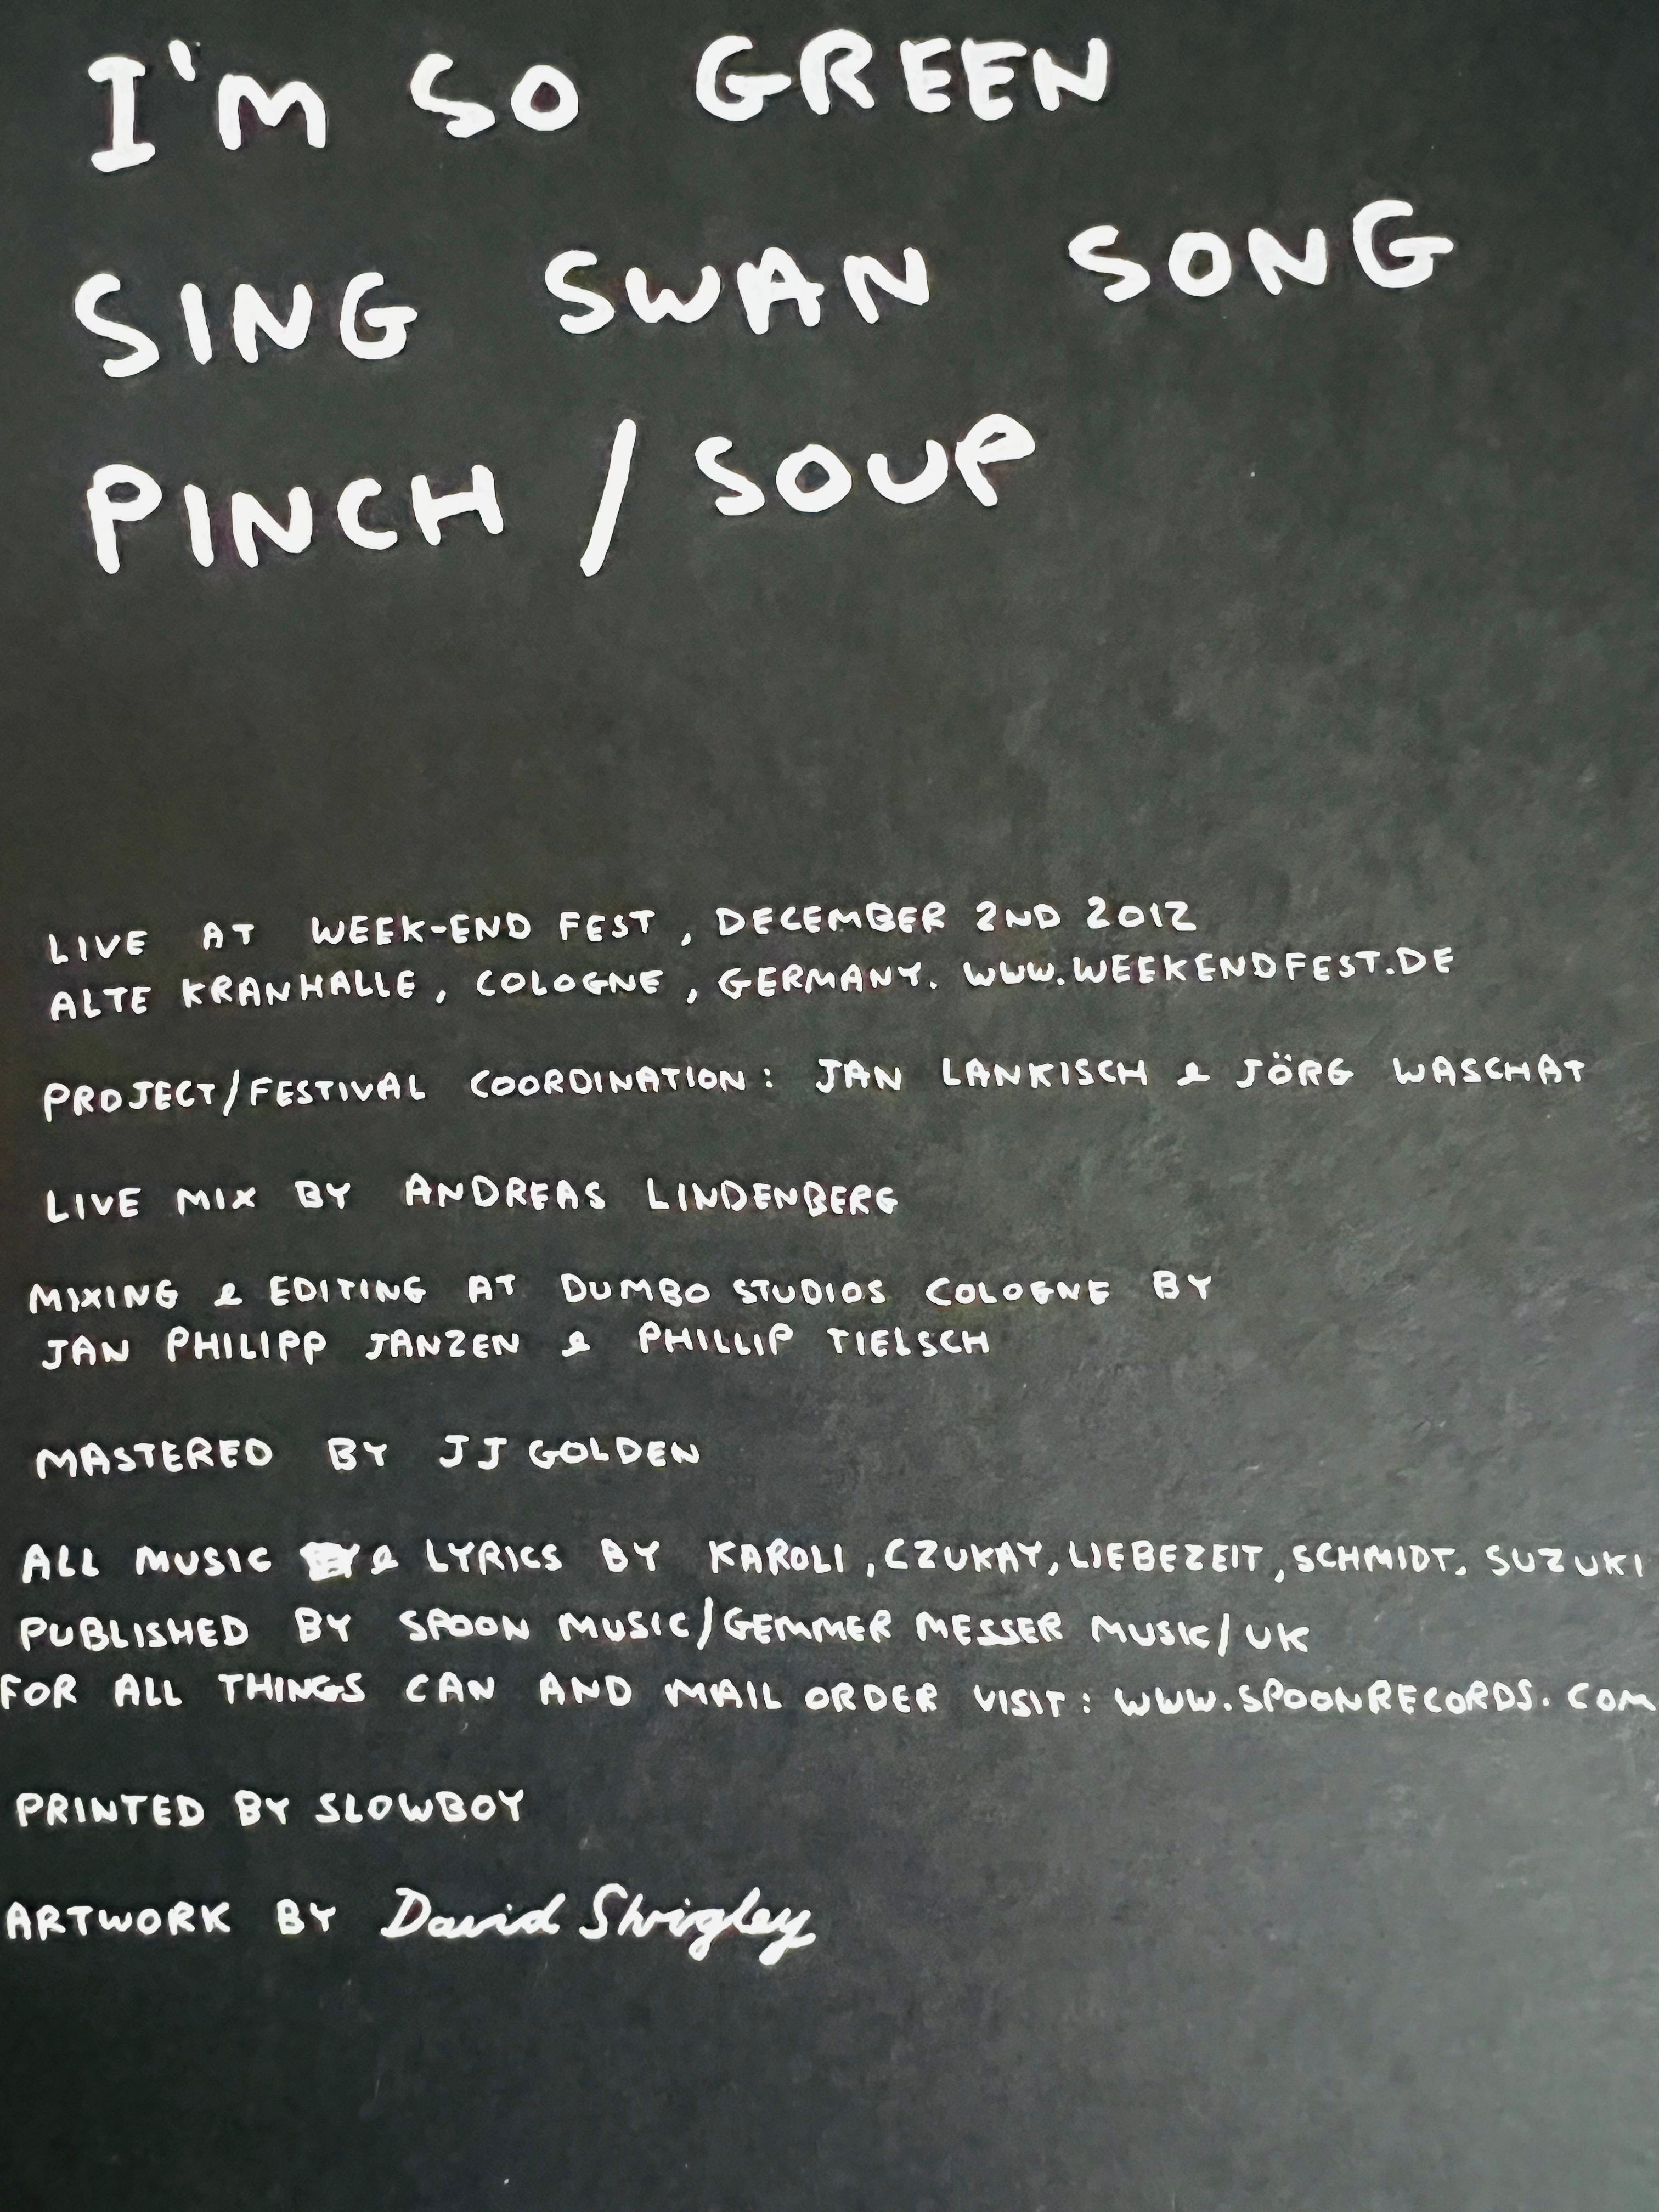 I'M SO GREEN
SING SWAN SONG
PINCH / SOUP
LIVE AT WEEK-END FEST, DECEMBER 2ND 2012
ALTE KRANHALLE, COLOGNE, GERMANY. WWW.WEEKENDFEST.DE
PROJECT/FESTIVAL COORDINATION: JAN LANKISCH & JÖRG WASCHAT
LIVE MIX BY ANDREAS LINDENBERG
MIXING & EDITING AT DUMBO STUDIOS COLOGNE BY
JAN PHILIPP JANZEN & PHILLIP TIELSCH
MASTERED BY JJ GOLDEN
ALL MUSIC & LYRICS BY KAROLI, CZUKAY, LIEBEZEIT, SCHMIDT, SUZUKI
PUBLISHED BY SPOON MUSIC/GEMMER MESSER MUSIC/UK
FOR ALL THINGS CAN AND MAIL ORDER VISIT: WWW.SPOONRECORDS.COM
PRINTED BY SLOWBOY
ARTWORK BY David Shrigley